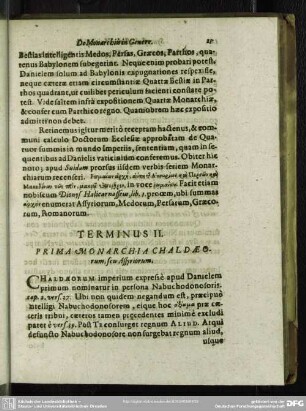 De Monarchiarũ Genere.
Bestias intelligentis Medos, Persas, Græcos, Parthos, qua-
tenus Babylonem subegerint. Neque enim probari potest,
Danielem solum ad Babylonis expugnationes respexisse,
neque cæteræ etiam circumstantiæ Quartæ Bestiæ in Par-
thos quadrant, ut cuilibet periculum facienti constare po-
test. Vide saltem infrà expositionem Quartæ Monarchiæ,
& confer cum Parthico regno. Quaniobrem hæc expositio
admitti non debet.
Retinemus igitur meritò receptam hactenus, & com-
muni calculo Doctorum Ecclesiæ approbatam de Qua-
tuor summis in mundo Imperiis, sententiam, quam in se-
quentibus ad Danielis vaticinium conferemus. Obiter hîc
noto; apud Suidam prorsus iisdem verbis seriem Monar-
chiarum recenseri.
nobiscum Dionys. Halicarnassens. lib. 1. præcœm. ubi summas
enumerat Assyriorum, Medorum, Persarum, Græco-
rum, Romanorum.
TERMINUS II.
PRIMA MONARCHIA CHALDÆO-
rum, seu Assyriorum.
CHALDÆORUM imperium expressè apud Danielem
primum nominatur in persona Nabuchodonosoris.
cap. 2. vers. 37. Ubi non quidem negandum est, præcipuè
intelligi Nabuchodonosorem, eique hoc præ cæ-
teris tribui, cæteros tamen præcedentes minimè excludi
patet è vers. 39. Post Te consurget regnum ALIUD. Atqui
defuncto Nabuchodonosore non surgebat regnum aliud,
usque